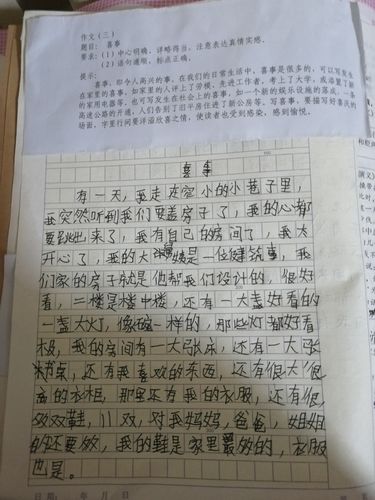 作文（三）
题目：喜事
要求：（1）中心明确，详略得当，注意表达真情实感。
（2）语句通顺，标点正确。
提示：
喜事，即令人高兴的事。在我们的日常生活中，喜事是很多的，可以写发生
在家里的喜事，如家里的人评上了劳模、先进工作者，考上了大学，或添置了新
的家用电器等，也可写发生在社会上的喜事，如一个新的娱乐设施的落成，一条
高速公路的开通，人们告别了旧平房住进了新公房等。写喜事，要描写好喜庆的
场面，字里行间要洋溢欣喜之情，使读者也受到感染，感到愉悦。
喜事
有一天，我走在窄小的小巷子里，
我突然听到我们要盖房子了，我的心都
要跳出来了，我有自己的房间了，我太
开心了，我的大舅是一位建筑事，我
们家的房子就是他帮我们设计的，很好
看，二楼是楼中楼，还有一大盏好看的
一盏大灯，像碗一样的，那些灯都好看
极，我的房间有一大张床，还有一大张
书桌，还有我喜欢的东西，还有很大很
高的衣柜，那里还有我的衣服，还有很
多双鞋，11双，对我妈妈，爸爸，姐姐
的还要多，我的鞋是家里最多的，衣服
也是。
年 月 日